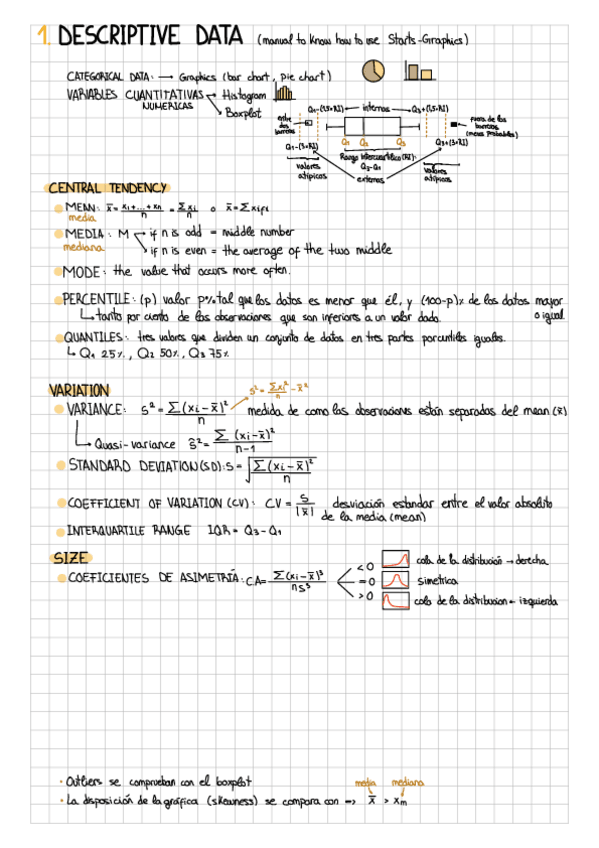 1. DESCRIPTIVE DATA (manual to know how to use Starts-Graphics)
CATEGORICAL DATA: → Graphics (bar chart, pie chart)
VARIABLES CUANTITATIVAS → Histogram
NUMERICAS → Boxplot
Q₁-(1,5×RI) ← internas → Q₃+(1,5×RI)
entre dos barreras
fuera de las barreras (menos probables)
Q₁ Q₂ Q₃
Q₁-(3×RI)
Q₃+(3×RI)
Rango intercuartílico (RI):
Q₃-Q₁
valores atípicos
externas
valores atípicos
CENTRAL TENDENCY
MEAN: x̄ = x₁+...+xₙ / n = Σxᵢ / n o x̄ = Σxᵢfᵢ
media
MEDIA: M → if n is odd = middle number
mediana → if n is even = the average of the two middle
MODE: the value that occurs more often.
PERCENTILE: (p) valor p% tal que los datos es menor que él, y (100-p)% de los datos mayor o igual.
↳ tanto por ciento de las observaciones que son inferiores a un valor dado.
QUANTILES: tres valores que dividen un conjunto de datos en tres partes porcentiles iguales.
↳ Q₁ 25%, Q₂ 50%, Q₃ 75%
VARIATION
s² = Σxᵢ² / n - x̄²
VARIANCE: s² = Σ(xᵢ-x̄)² / n medida de como las observaciones están separadas del mean (x̄)
↳ Quasi-variance ŝ² = Σ(xᵢ-x̄)² / n-1
STANDARD DEVIATION (SD): s = √(Σ(xᵢ-x̄)² / n)
COEFFICIENT OF VARIATION (CV): CV = s / |x̄| desviación estandar entre el valor absoluto
de la media (mean)
INTERQUARTILE RANGE IQR = Q₃-Q₁
SIZE
COEFICIENTES DE ASIMETRÍA: CA = Σ(xᵢ-x̄)³ / ns³
<0 cola de la distribución → derecha
=0 simetrica
>0 cola de la distribucion ← izquierda
· Outliers se comprueban con el boxplot
media mediana
· La disposición de la gráfica (skewness) se compara con => x̄ > xₘ